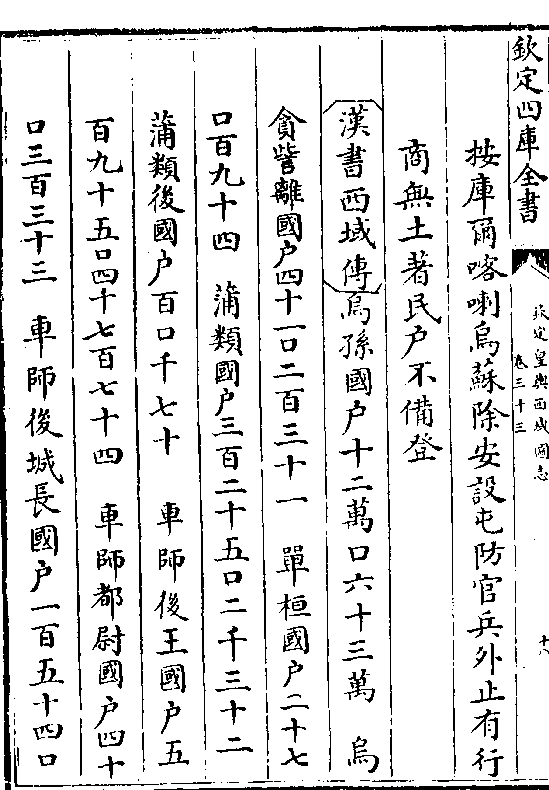 欽定四庫全書
欽定皇輿西域圖志
卷三十三
十八
按庫爾喀喇烏蘇除安設屯防官兵外止有行
商無土著民户不備登
漢書西域傳烏孫國户十二萬口六十三萬　烏
貪訾離國户四十一口二百三十一　單桓國户二十七
口百九十四　蒲類國户三百二十五口二千三十二
蒲類後國户百口千七十　車師後王國户五
百九十五口四千七百七十四　車師都尉國户四十
口三百三十三　車師後城長國户一百五十四口